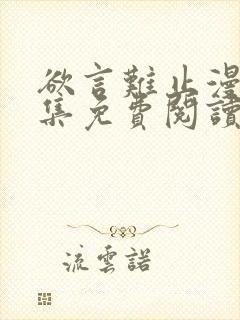 欲言難止漫
集免費閱讀
流雲諾